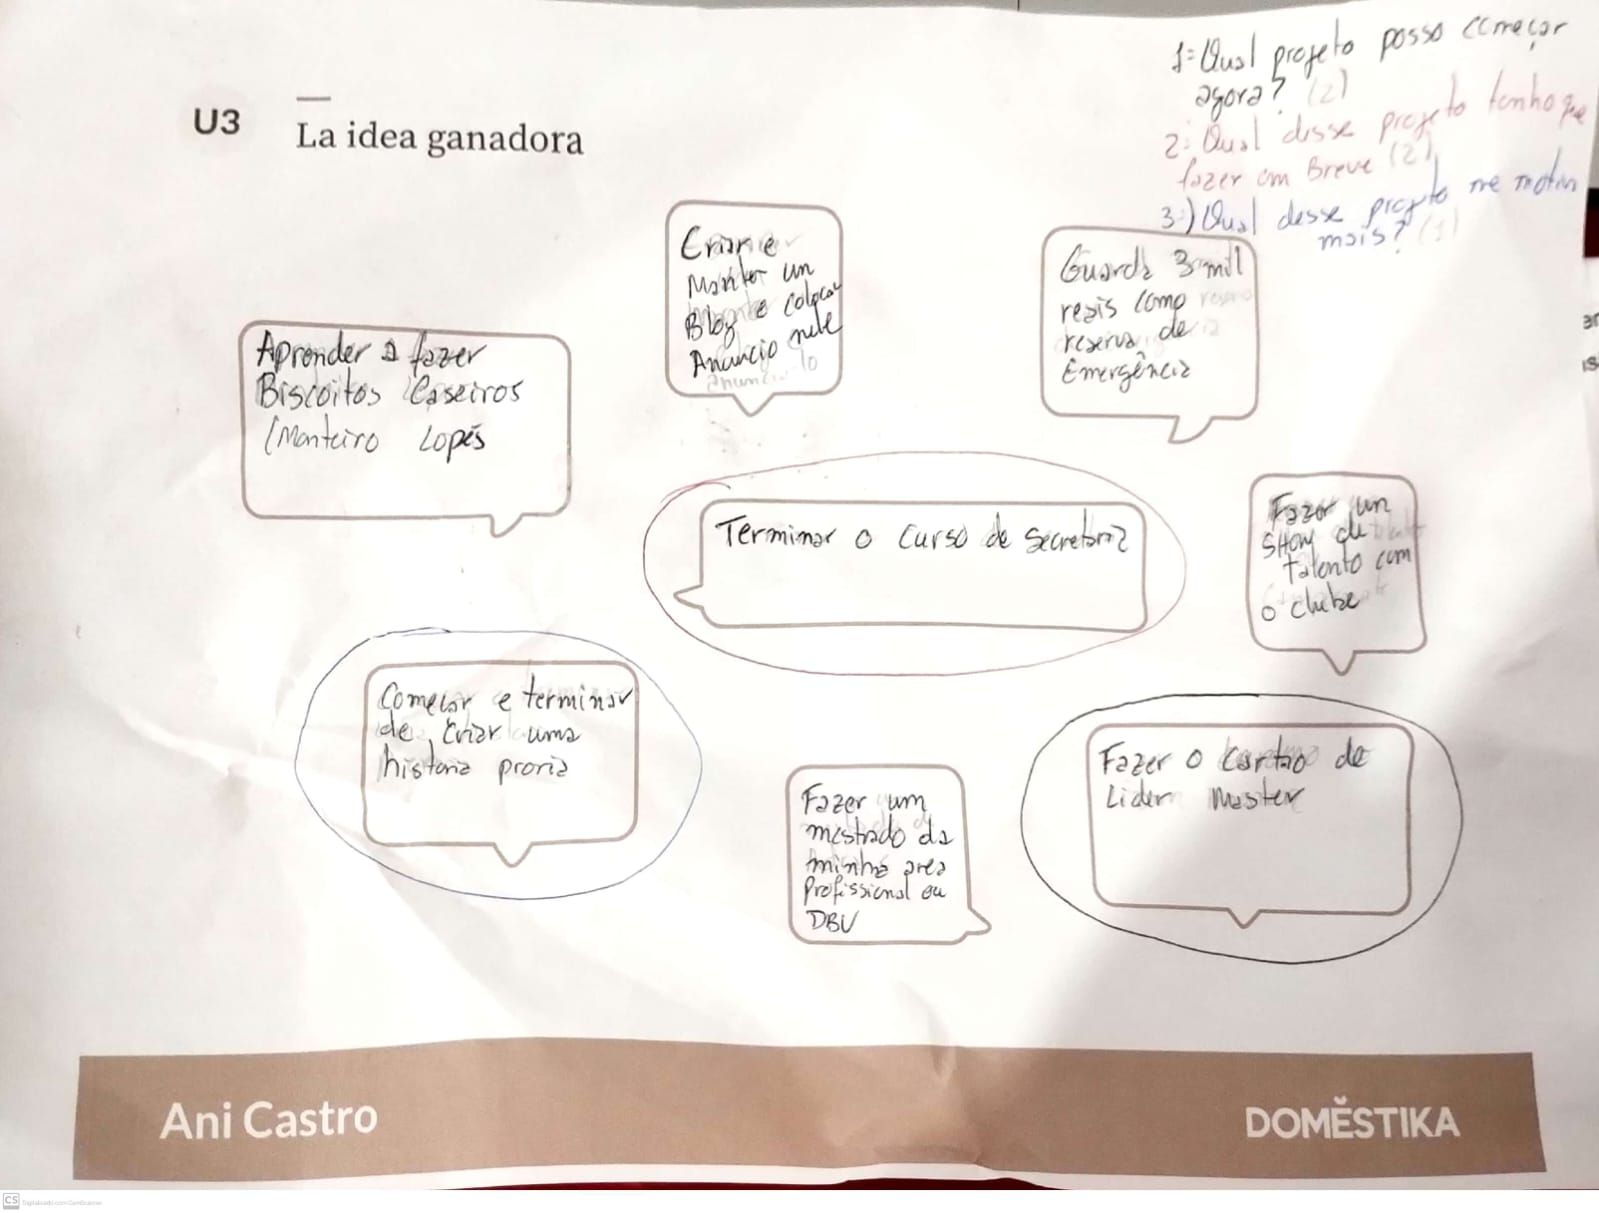 U3
La idea ganadora
1=Qual projeto posso começar
agora? (2)
2: Qual disse projeto tenho que
fazer em Breve (2)
3:) Qual desse projeto me motiva
mais? (1)
Criar e
Manter un
Blog e colocar
Anuncio nele
Guarda 3 mil
reais como
reserva de
Emergência
Aprender a fazer
Biscoitos Caseiros
(Monteiro Lopes
Terminar o curso de secretaria
Fazer un
SHow de
talento com
o clube
Começar e terminar
de criar uma
historia proria
Fazer o cartão de
Lider Master
Fazer um
mestrado da
minha area
Profissional ou
DBV
Ani Castro
DOMĔSTIKA
CS
Digitalizado com CamScanner